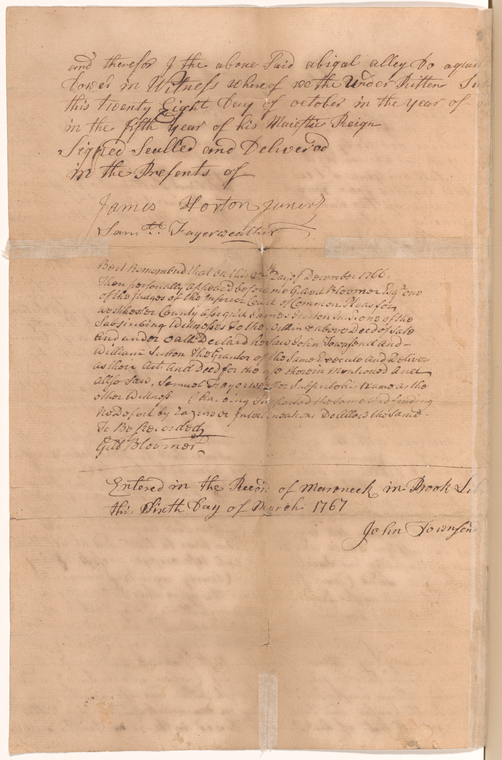 and therefor I the above Said abigal alley Do aquit
Dower in Witness whereof we the Under Ritten
this twenty Eight Day of october in the year of
in the fifth Year of his Maiesties Reign
Signed Sealled and Deliverd
in the Presents of
James Horton Juner
Saml. Fayerweather
Be it Remembred that on this Day of December 1766
Then personally appeared before me Gilbert Bloomer Esqr. one
of the Judges of the Inferior Court of Common Pleas for
westchester County assigned James Horton Junr. one of the
Subscribing Witnesses to the within & above Deed of Sale
and under oath Declared he saw John Townsend and
William Sutton the Grantor of the Same Execute and Deliver
as their Act and Deed for the use therein mentioned and
allso Saw Samuel Fayerweather Subscribe his name as the
other Witness I having Inspected the Same and finding
no Rasures or Interlineations Do allow the Same
To Be Recorded
Gilbt. Bloomer
Entered in the Record of Maroneck in Book
this Sixth Day of March 1767
John Townsend